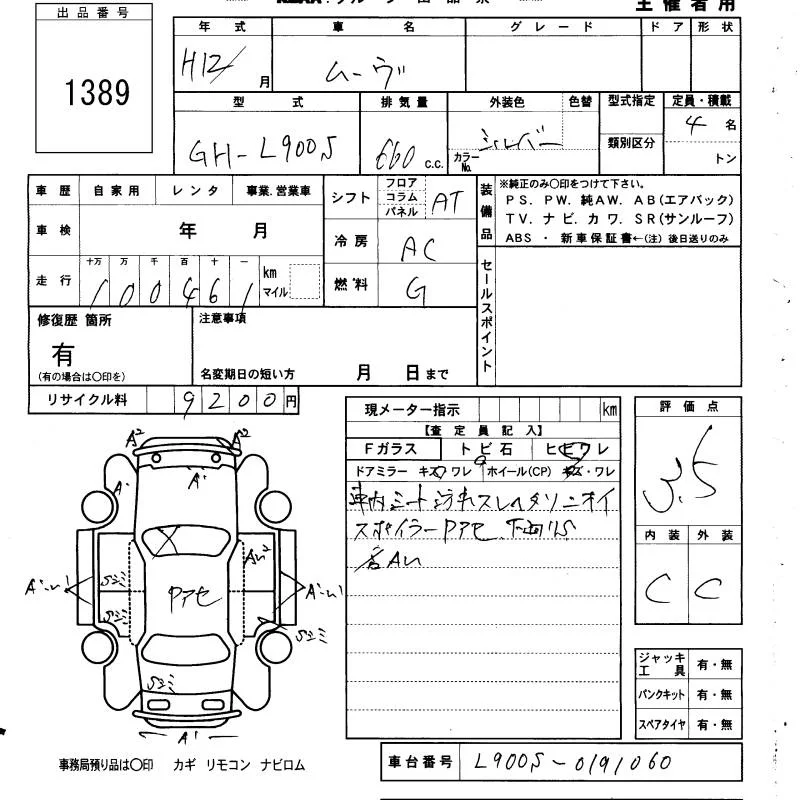 主催者用
出品番号
1389
年式 車名 グレード ドア 形状
H12/月 ムーヴ
型式 排気量 外装色 色替 型式指定 定員・積載
GH-L900S 660 c.c. シルバー カラーNo. 類別区分 4名
トン
車歴 自家用 レンタ 事業.営業車
車検 年 月
走行 十万 万 千 百 十 一
100461 km マイル
シフト フロア コラム パネル AT
冷房 AC
燃料 G
装備品
※純正のみ〇印をつけて下さい。
PS. PW. 純AW. AB(エアバック)
TV. ナビ. カワ. SR(サンルーフ)
ABS ・ 新車保証書←(注)後日送りのみ
セールスポイント
修復歴 箇所
有
(有の場合は〇印を)
注意事項
名変期日の短い方 月 日まで
リサイクル料 9200円
現メーター指示 km
【査定員記入】
Fガラス トビ石 ヒビワレ
ドアミラー キズワレ ホイール(CP) キズ・ワレ
車内シート汚れスレヘタリニオイ
スポイラーPアセ 下廻りS
各AU
評価点
3.5
内装 外装
C C
A2 A2
A'
A'
AU2
Pアセ
Sシミ
Sシミ
Sシミ
Sシミ
A'
ジャッキ工具 有・無
パンクキット 有・無
スペアタイヤ 有・無
事務局預り品は〇印 カギ リモコン ナビロム
車台番号 L900S-0191060